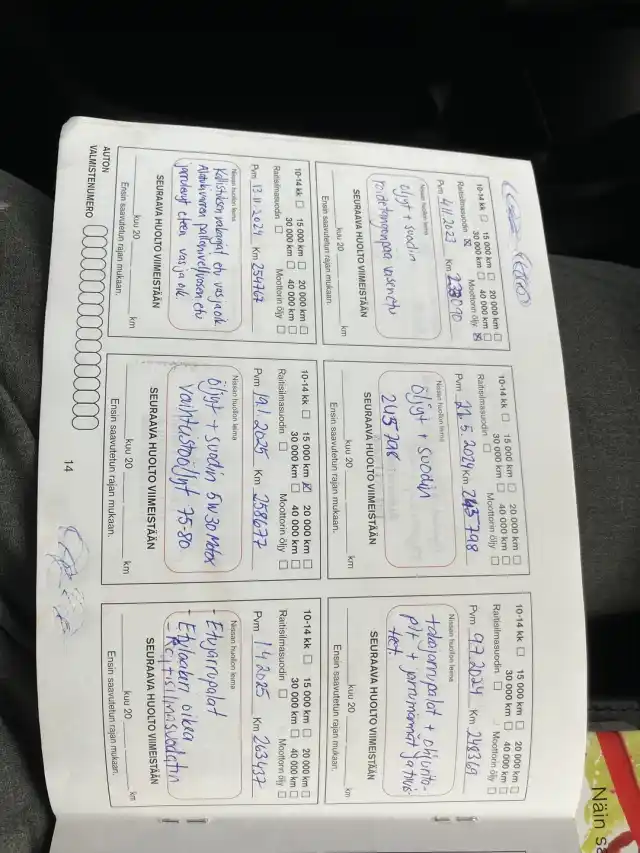 10-14 kk 15 000 km 20 000 km
30 000 km 40 000 km
Raitisilmasuodin Moottorin öljy
Pvm 4.11.2023 Km
Nissan huollon leima
öljyt + suodin
raidetangonpää vasen etu
SEURAAVA HUOLTO VIIMEISTÄÄN
kuu 20 km
Ensin saavutetun rajan mukaan.
10-14 kk 15 000 km 20 000 km
30 000 km 40 000 km
Raitisilmasuodin Moottorin öljy
Pvm 21.5.2024 Km 245798
Nissan huollon leima
öljyt + suodin
245798
SEURAAVA HUOLTO VIIMEISTÄÄN
kuu 20 km
Ensin saavutetun rajan mukaan.
10-14 kk 15 000 km 20 000 km
30 000 km 40 000 km
Raitisilmasuodin Moottorin öljy
Pvm 9.7.2024 Km 248361
Nissan huollon leima
takajarrupalat +
+ jarrumännät ja
SEURAAVA HUOLTO VIIMEISTÄÄN
kuu 20 km
Ensin saavutetun rajan mukaan.
10-14 kk 15 000 km 20 000 km
30 000 km 40 000 km
Raitisilmasuodin Moottorin öljy
Pvm 13.11.2024 Km 254767
Nissan huollon leima
Kallistuksen vakaajat etu vas ja oik
Alatukivarren pallonivel vasen etu
jarrulevyt eteen vas ja oik
SEURAAVA HUOLTO VIIMEISTÄÄN
kuu 20 km
Ensin saavutetun rajan mukaan.
10-14 kk 15 000 km 20 000 km
30 000 km 40 000 km
Raitisilmasuodin Moottorin öljy
Pvm 19.1.2025 Km 258677
Nissan huollon leima
öljyt + suodin 5W30
vaihteistoöljyt 75-80
SEURAAVA HUOLTO VIIMEISTÄÄN
kuu 20 km
Ensin saavutetun rajan mukaan.
10-14 kk 15 000 km 20 000 km
30 000 km 40 000 km
Raitisilmasuodin Moottorin öljy
Pvm 1.4.2025 Km 263437
Nissan huollon leima
- Etujarrupalat
- Etulaakeri oikea
- Raitisilmasuodatin
SEURAAVA HUOLTO VIIMEISTÄÄN
kuu 20 km
Ensin saavutetun rajan mukaan.
AUTON
VALMISTENUMERO
14
Näin